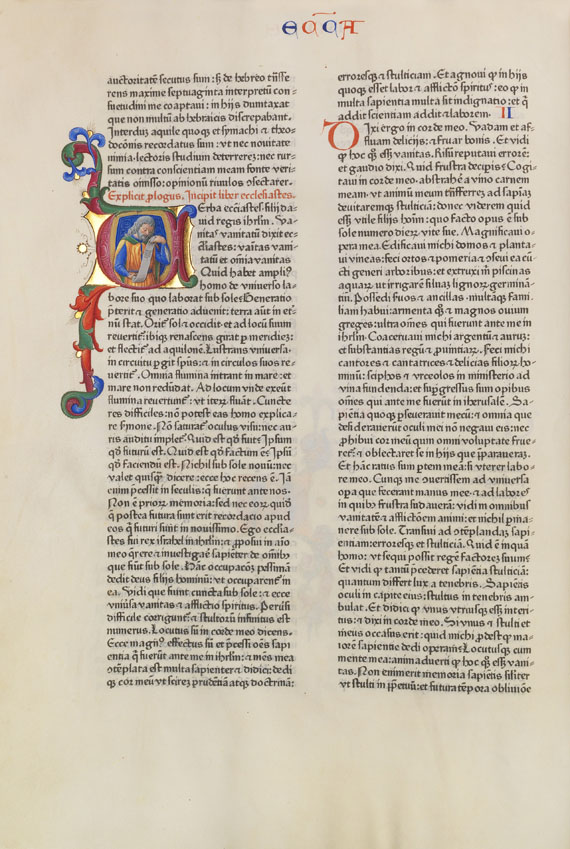 ECCA
auctoritatē secutus sum: sʒ de hebreo trāsfe
rens maxime septuaginta interpretū con⸗
suetudini me coaptaui: in hijs dumtaxat
que non multū ab hebraicis discrepabant.
Interdū aquile quoqʒ et symachi ⁊ theo⸗
docōnis recordatus sum: vt nec nouitate
nimia lectoris studium deterrerē: nec rur⸗
sum contra conscientiam meam fonte veri⸗
tatis omisso: opinionū riuulos ɔsectarer.
Explicit ꝓlogus. Incipit liber ecclesiastes.
Verba eccīastes filij da⸗
uid regis ihrlm. Va⸗
nitas vanitatū dixit ec⸗
clīastes: vanitas vani⸗
tatū et omīa vanitas
Quid habet ampliꝰ
homo de vniuerso la⸗
bore suo quo laborat sub sole? Generatio
p̄terit ⁊ generatio aduenit: terra aūt in et̄⸗
nū stat. Oritꝰ sol ⁊ occidit: et ad locū suum
reuertit᷑: ibiqʒ renascens girat ꝑ meridiez:
et flectit᷑ ad aquilonē. Lustrans vniuersa
in circuitu ꝑgit sp̄us: ⁊ in circulos suos re⸗
uertit᷑. Omnia flumina intrant in mare: et
mare non redūdat. Ad locum vnde exeūt
flumina reuertunt᷑: vt iterū fluāt. Cuncte
res difficiles: nō potest eas homo explica⸗
re s̄mone. Nō saturat᷑ oculus visu: nec au⸗
ris auditu implet᷑. Quid est qd̄ fuit? Ipsum
qd̄ futurū est. Quid est qd̄ factum ē? Ipsū
qd̄ faciendū est. Nichil sub sole nouū: nec
valet quisqꝫ dicere: ecce hoc recens ē. Iā
enim p̄cessit in seculis: q̄ fuerunt ante nos.
Non ē priorꝝ memoria: sed nec eorꝝ quidē
q̄ postea futura sunt erit recordacio apud
eos q̄ futuri sunt in nouissimo. Ego ecclīa⸗
stes fui rex israhel in ihrlm: ⁊ ꝓposui in aīo
meo q̄rere ⁊ inuestigare sapiēter de omībꝰ
que fiūt sub sole. Hāc occupacōꝫ pessimā
dedit deus filijs hominū: vt occuparent᷑ in
ea. Vidi que fiunt cuncta sub sole: ⁊ ecce
vniūsa vanitas ⁊ afflictio spiritus. Peruersi
difficile corrigunt᷑: ⁊ stultorū infinitus est
numerus. Locutus sū in corde meo dicens.
Ecce magnꝰ effectus sū et p̄cessi oēs sapi
entia q̄ fuerūt ante me in ihrlm: ⁊ mēs mea
ɔtēplata est multa sapienter ⁊ didici: dedi
qʒ cor meū vt scirem prudētiā atqʒ doctrinā:
erroresqʒ ⁊ stulticiam. Et agnoui ꝙ in hijs
quoqʒ esset labor ⁊ afflictō spiritus: eo ꝙ in
multa sapientia multa sit indignatio: et q̄
addit scientiam addit ⁊ laborem. II
Dixi ergo in corde meo. Vadam et af⸗
fluam delicijs: ⁊ fruar bonis. Et vidi
ꝙ hoc qʒ esset vanitas. Risū reputaui errorē:
et gaudio dixi. Quid frustra decipis? Cogi
taui in corde meo abstrahē a vino carnem
meam: vt animū meum trāsferrem ad sapiām
deuitaremqʒ stulticiā: donec viderem quid
esset vtile filijs hoīm: quo facto opus ē sub
sole numero dierꝝ vite sue. Magnificaui o⸗
pera mea. Edificaui michi domos ⁊ planta⸗
ui vineas: feci ortos ⁊ pomeria ⁊ ɔseui ea cū
cti generi arboribus: et extruxi m̄ piscinas
aquarꝝ vt irrigarē siluaꝫ lignorꝝ germinā⸗
tiū. Possedi suos ⁊ ancillas: multāqʒ fami⸗
liam habui: armenta qʒ ⁊ magnos ouium
greges: vltra omēs qui fuerunt ante me in
ihrlm. Coaceruaui michi argentū ⁊ aurū:
et substantias regū ⁊ ꝓuinciarꝝ. Feci michi
cantores ⁊ cantatrices ⁊ delicias filiorꝝ ho⸗
minū: sciphos ⁊ vrceolos in ministerio ad
vina fundenda: et suꝑgressus sum opibus
omēs qui ante me fuerūt in iherusalē. Sa⸗
pientia quoqʒ ꝑseuerauit mecū: ⁊ omnia que
desiderauerūt oculi mei nō negaui eis: nec
ꝓhibui cor meū quin omni voluptate frue⸗
ret᷑: ⁊ oblectaret se in hijs que p̄paraueraꝫ.
Et hāc ratus sum ꝑtem meā: si vterer labo⸗
re meo. Cunqʒ me ɔuertissem ad vniuersa
opa que fecerant manus mee: ⁊ ad labores
in quibꝰ frustra sudauerā: vidi in omnibus
vanitatē ⁊ afflictōem animi: et nichil ꝑma⸗
nere sub sole. Transiui ad ɔtēplandaꝫ sapi⸗
entiam: erroresqʒ et stulticiā. Quid ē inquā
homo: vt sequi possit regē factorem suum?
Et vidi ꝙ tantū p̄cederet sapientia stulticiā:
quantum differt lux a tenebris. Sapiētis
oculi in capite eius: stultus in tenebris am⸗
bulat. Et didici ꝙ vnus vtriusqʒ esset interi⸗
tus: ⁊ dixi in corde meo. Si vnus ⁊ stulti et
meus occasus erit: quid michi ꝓdest ꝙ ma⸗
iorē sapientie dedi operam? Locutusqʒ cum
mente mea: animaduerti ꝙ hoc qʒ esset vani⸗
tas. Non enim erit memoria sapiētis sil̄iter
vt stulti in ꝑpetuū: et futura tēpora obliuiōe